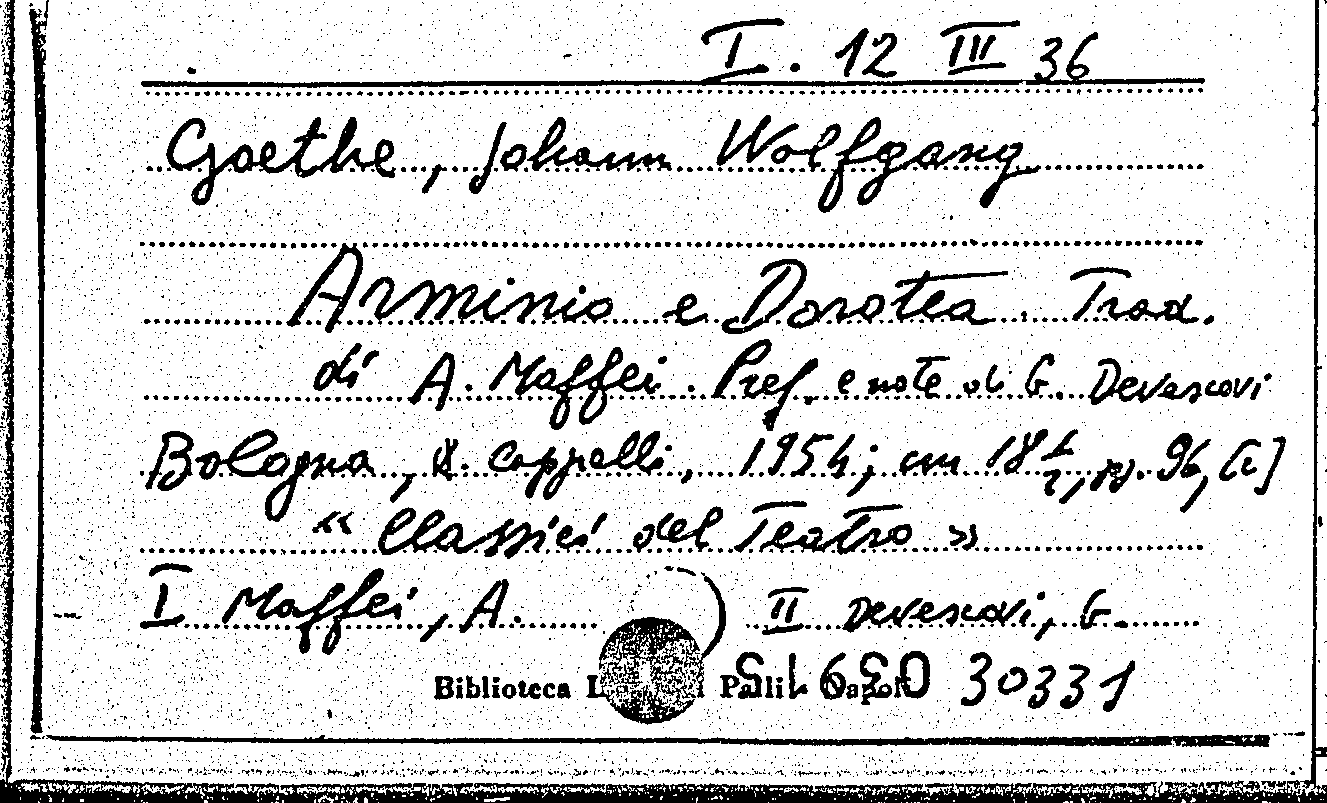 I. 12 III 36
Goethe, Johann Wolfgang
Arminio e Dorotea. Trad.
di A. Maffei. Pref. e note di G. Devescovi
Bologna, L. Cappelli, 1954; cm 18 1/2, pp. 96, [2]
« Classici del Teatro »
I Maffei, A. II Devescovi, G.
Biblioteca 30331